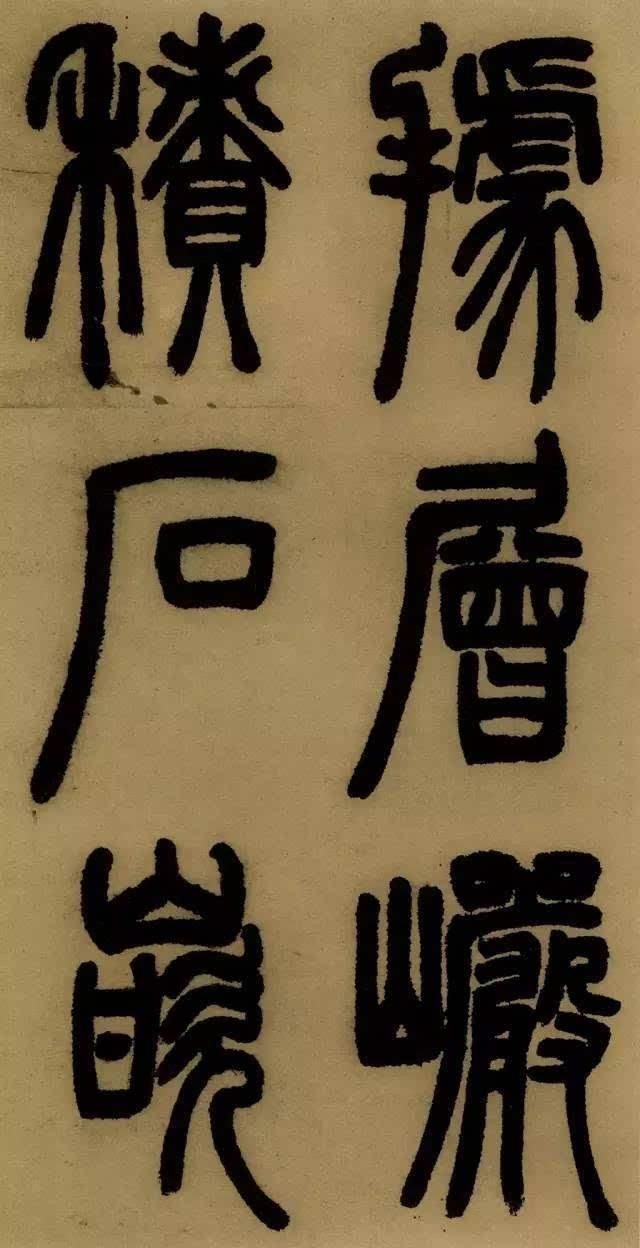 據層巖
積石嵌